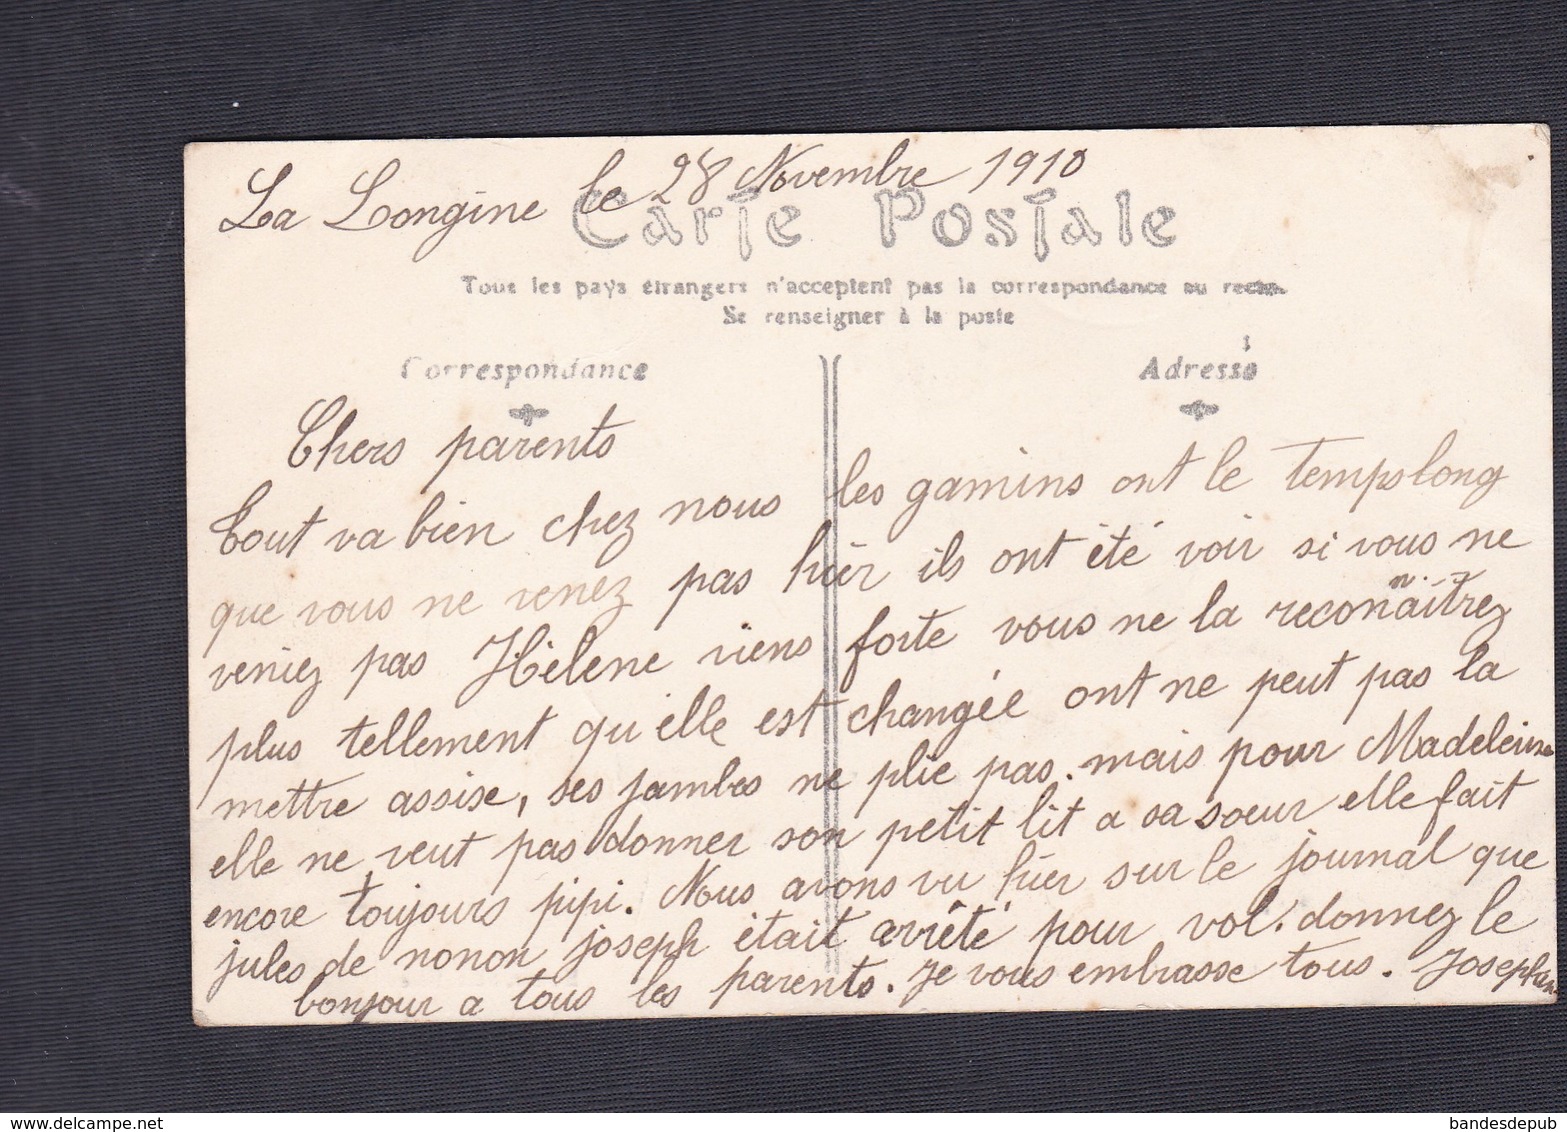 La Longine le 28 Novembre 1910
Carte Postale
Tous les pays étrangers n'acceptent pas la correspondance au recto
Se renseigner à la poste
Correspondance
Adresse
Chers parents
Tout va bien chez nous les gamins ont le temps long
que vous ne venez pas hièr ils ont été voir si vous ne
veniez pas Hélene viens forte vous ne la reconnaîtrez
plus tellement qu'elle est changée ont ne peut pas la
mettre assise, ses jambes ne plie pas. mais pour Madeleine
elle ne veut pas donner son petit lit a sa soeur elle fait
encore toujours pipi. Nous avons vu hier sur le journal que
jules de nonon joseph était arrêté pour vol. donnez le
bonjour a tous les parents. Je vous embrasse tous. Josephen
delcampe.net
bandesdepub